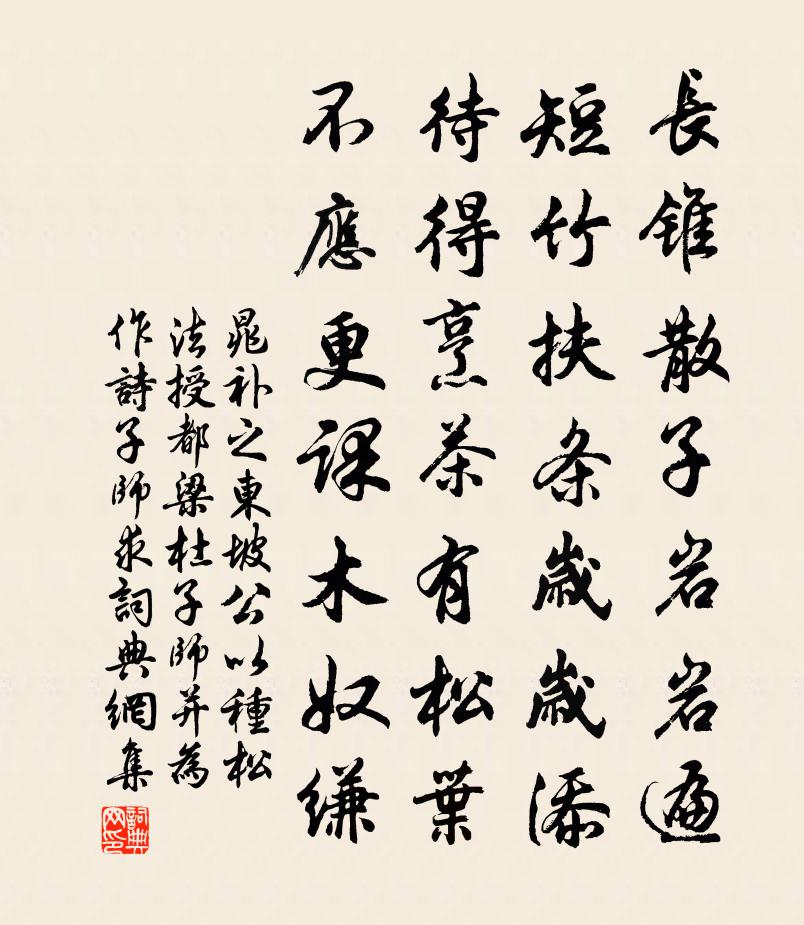 長錐散子岩岩遍
短竹扶条歲歲添
待得烹茶有松葉
不應更課木奴縑
晁补之東坡公以種松
法授都梁杜子師并為
作詩子師求詞典網集
詞典网印